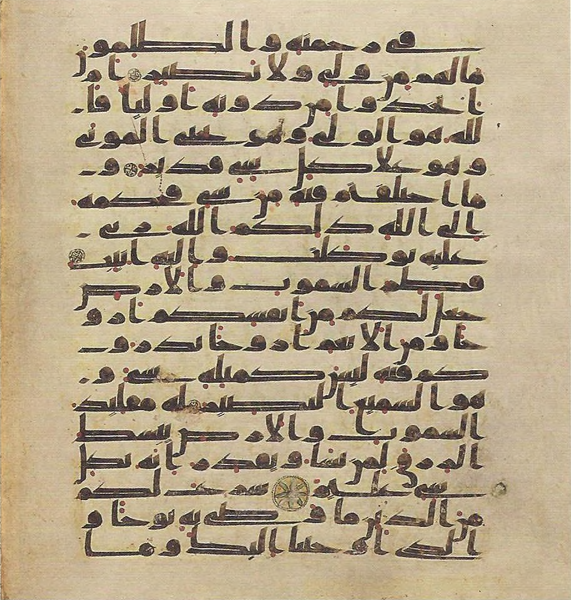 في رحمته والظلمون
ما لهم من ولي ولا نصير ام
اتخذوا من دونه اوليا فا
لله هو الولي وهو يحي الموتى
وهو على كل شي قدير و
ما اختلفتم فيه من شي فحكمه
الى الله ذلكم الله ربي
عليه توكلت واليه انيب
فطر السموت والارض
جعل لكم من انفسكم ازو
جا ومن الانعم ازوجا يذرو
كم فيه ليس كمثله شي و
هو السميع البصير له مقليد
السموت والارض يبسط
الرزق لمن يشا ويقدر انه بكل
شي عليم شرع لكم
من الدين ما وصى به نوحا و
الذي اوحينا اليك وما